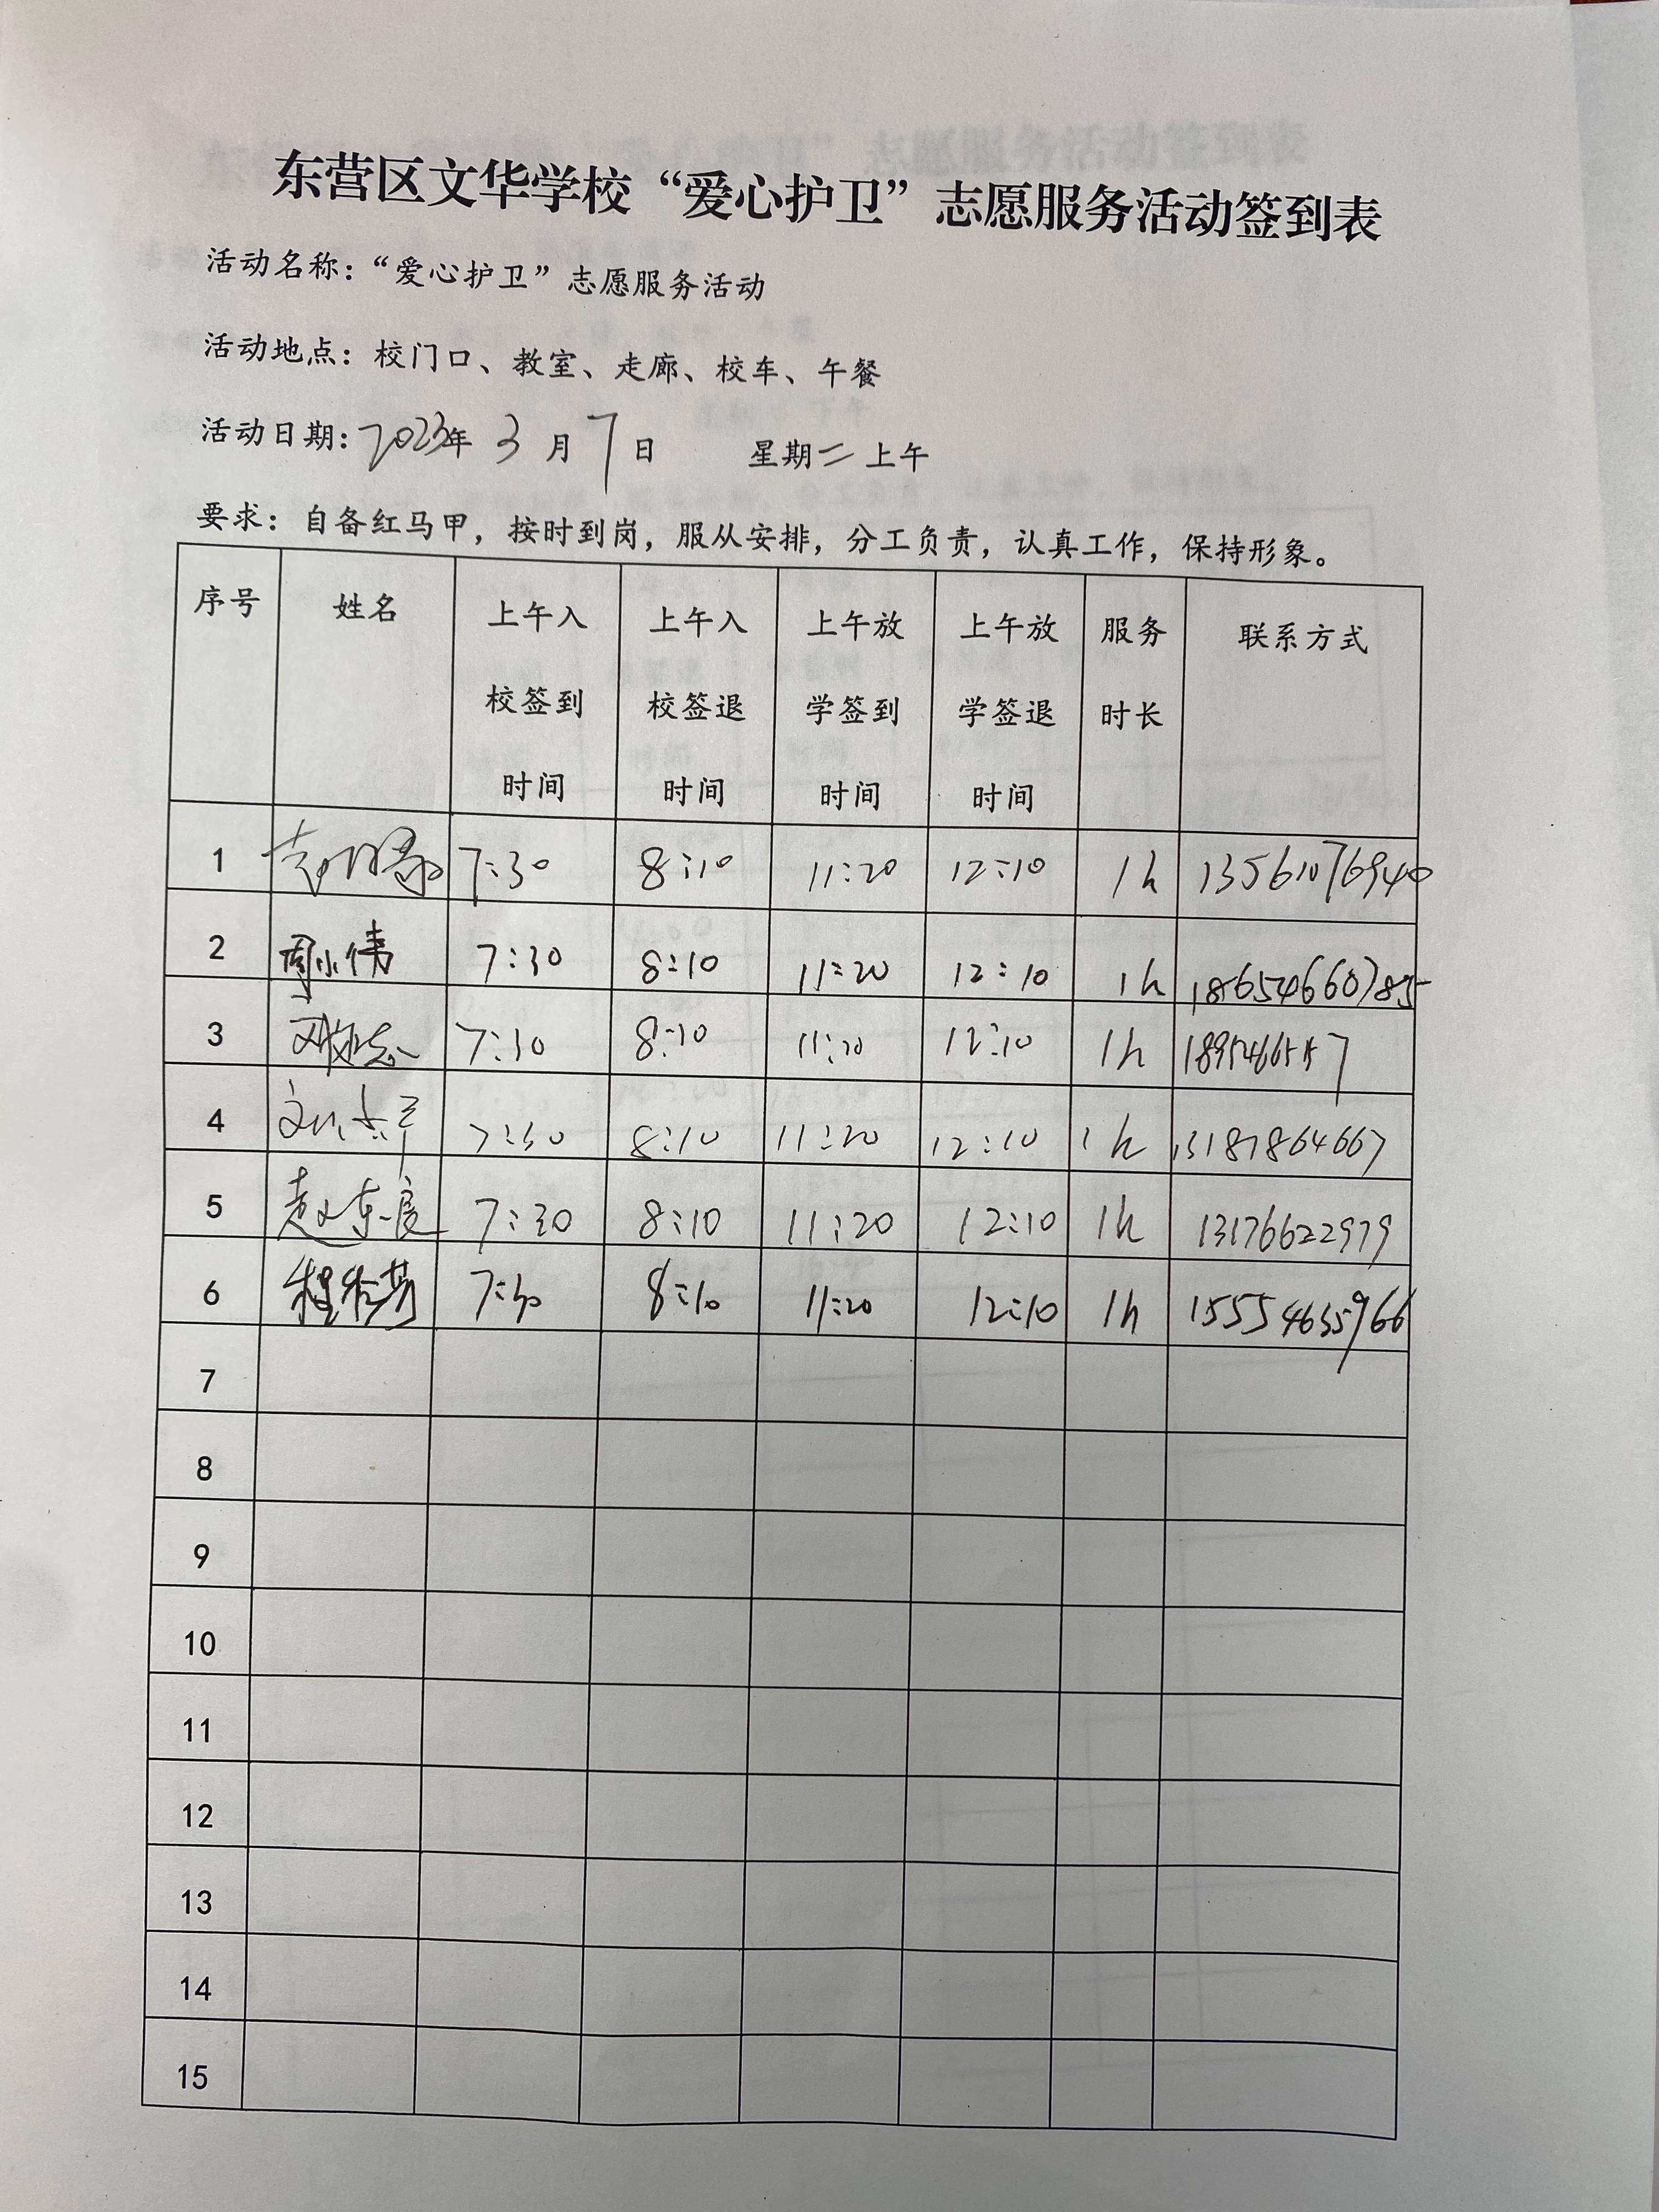 东营区文华学校“爱心护卫”志愿服务活动签到表
活动名称：“爱心护卫”志愿服务活动
活动地点：校门口、教室、走廊、校车、午餐
活动日期：2023年 3 月 7 日 星期二 上午
要求：自备红马甲，按时到岗，服从安排，分工负责，认真工作，保持形象。
序号 姓名 上午入校签到时间 上午入校签退时间 上午放学签到时间 上午放学签退时间 服务时长 联系方式
1 7:30 8:10 11:20 12:10 1h 13561076940
2 周小伟 7:30 8:10 11:20 12:10 1h
3 7:30 8:10 11:20 12:10 1h
4 7:30 8:10 11:20 12:10 1h 13187864667
5 7:30 8:10 11:20 12:10 1h 13176622979
6 7:30 8:10 11:20 12:10 1h 15554635966
7
8
9
10
11
12
13
14
15